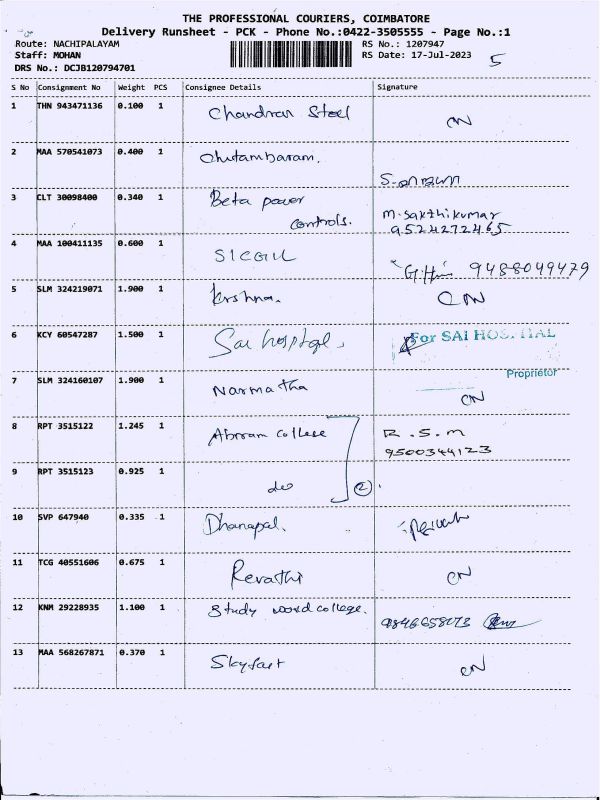 THE PROFESSIONAL COURIERS, COIMBATORE
Delivery Runsheet - PCK - Phone No.:0422-3505555 - Page No.:1
Route: NACHIPALAYAM
RS No.: 1207947
Staff: MOHAN
RS Date: 17-Jul-2023
5
DRS No.: DCJB120794701
S No Consignment No Weight PCS Consignee Details Signature
1 THN 943471136 0.100 1 Chandran Steel CN
2 MAA 570541073 0.400 1 Chidambaram.
3 CLT 30098400 0.340 1 Beta power
controls.
M.Sakthikumar
9524272465
4 MAA 100411135 0.600 1 SICGIL
9488049479
5 SLM 324219071 1.900 1 Krishna. CN
6 KCY 60547287 1.500 1 Sai hospital. For SAI HOSPITAL
Proprietor
7 SLM 324160107 1.900 1 Narmatha CN
8 RPT 3515122 1.245 1 College R.S.M
9500344123
9 RPT 3515123 0.925 1 do 2
10 SVP 647940 0.335 1 Dhanapal.
11 TCG 40551606 0.675 1 Revathi CN
12 KNM 29228935 1.100 1 Study world college.
13 MAA 568267871 0.370 1 Skyfast CN